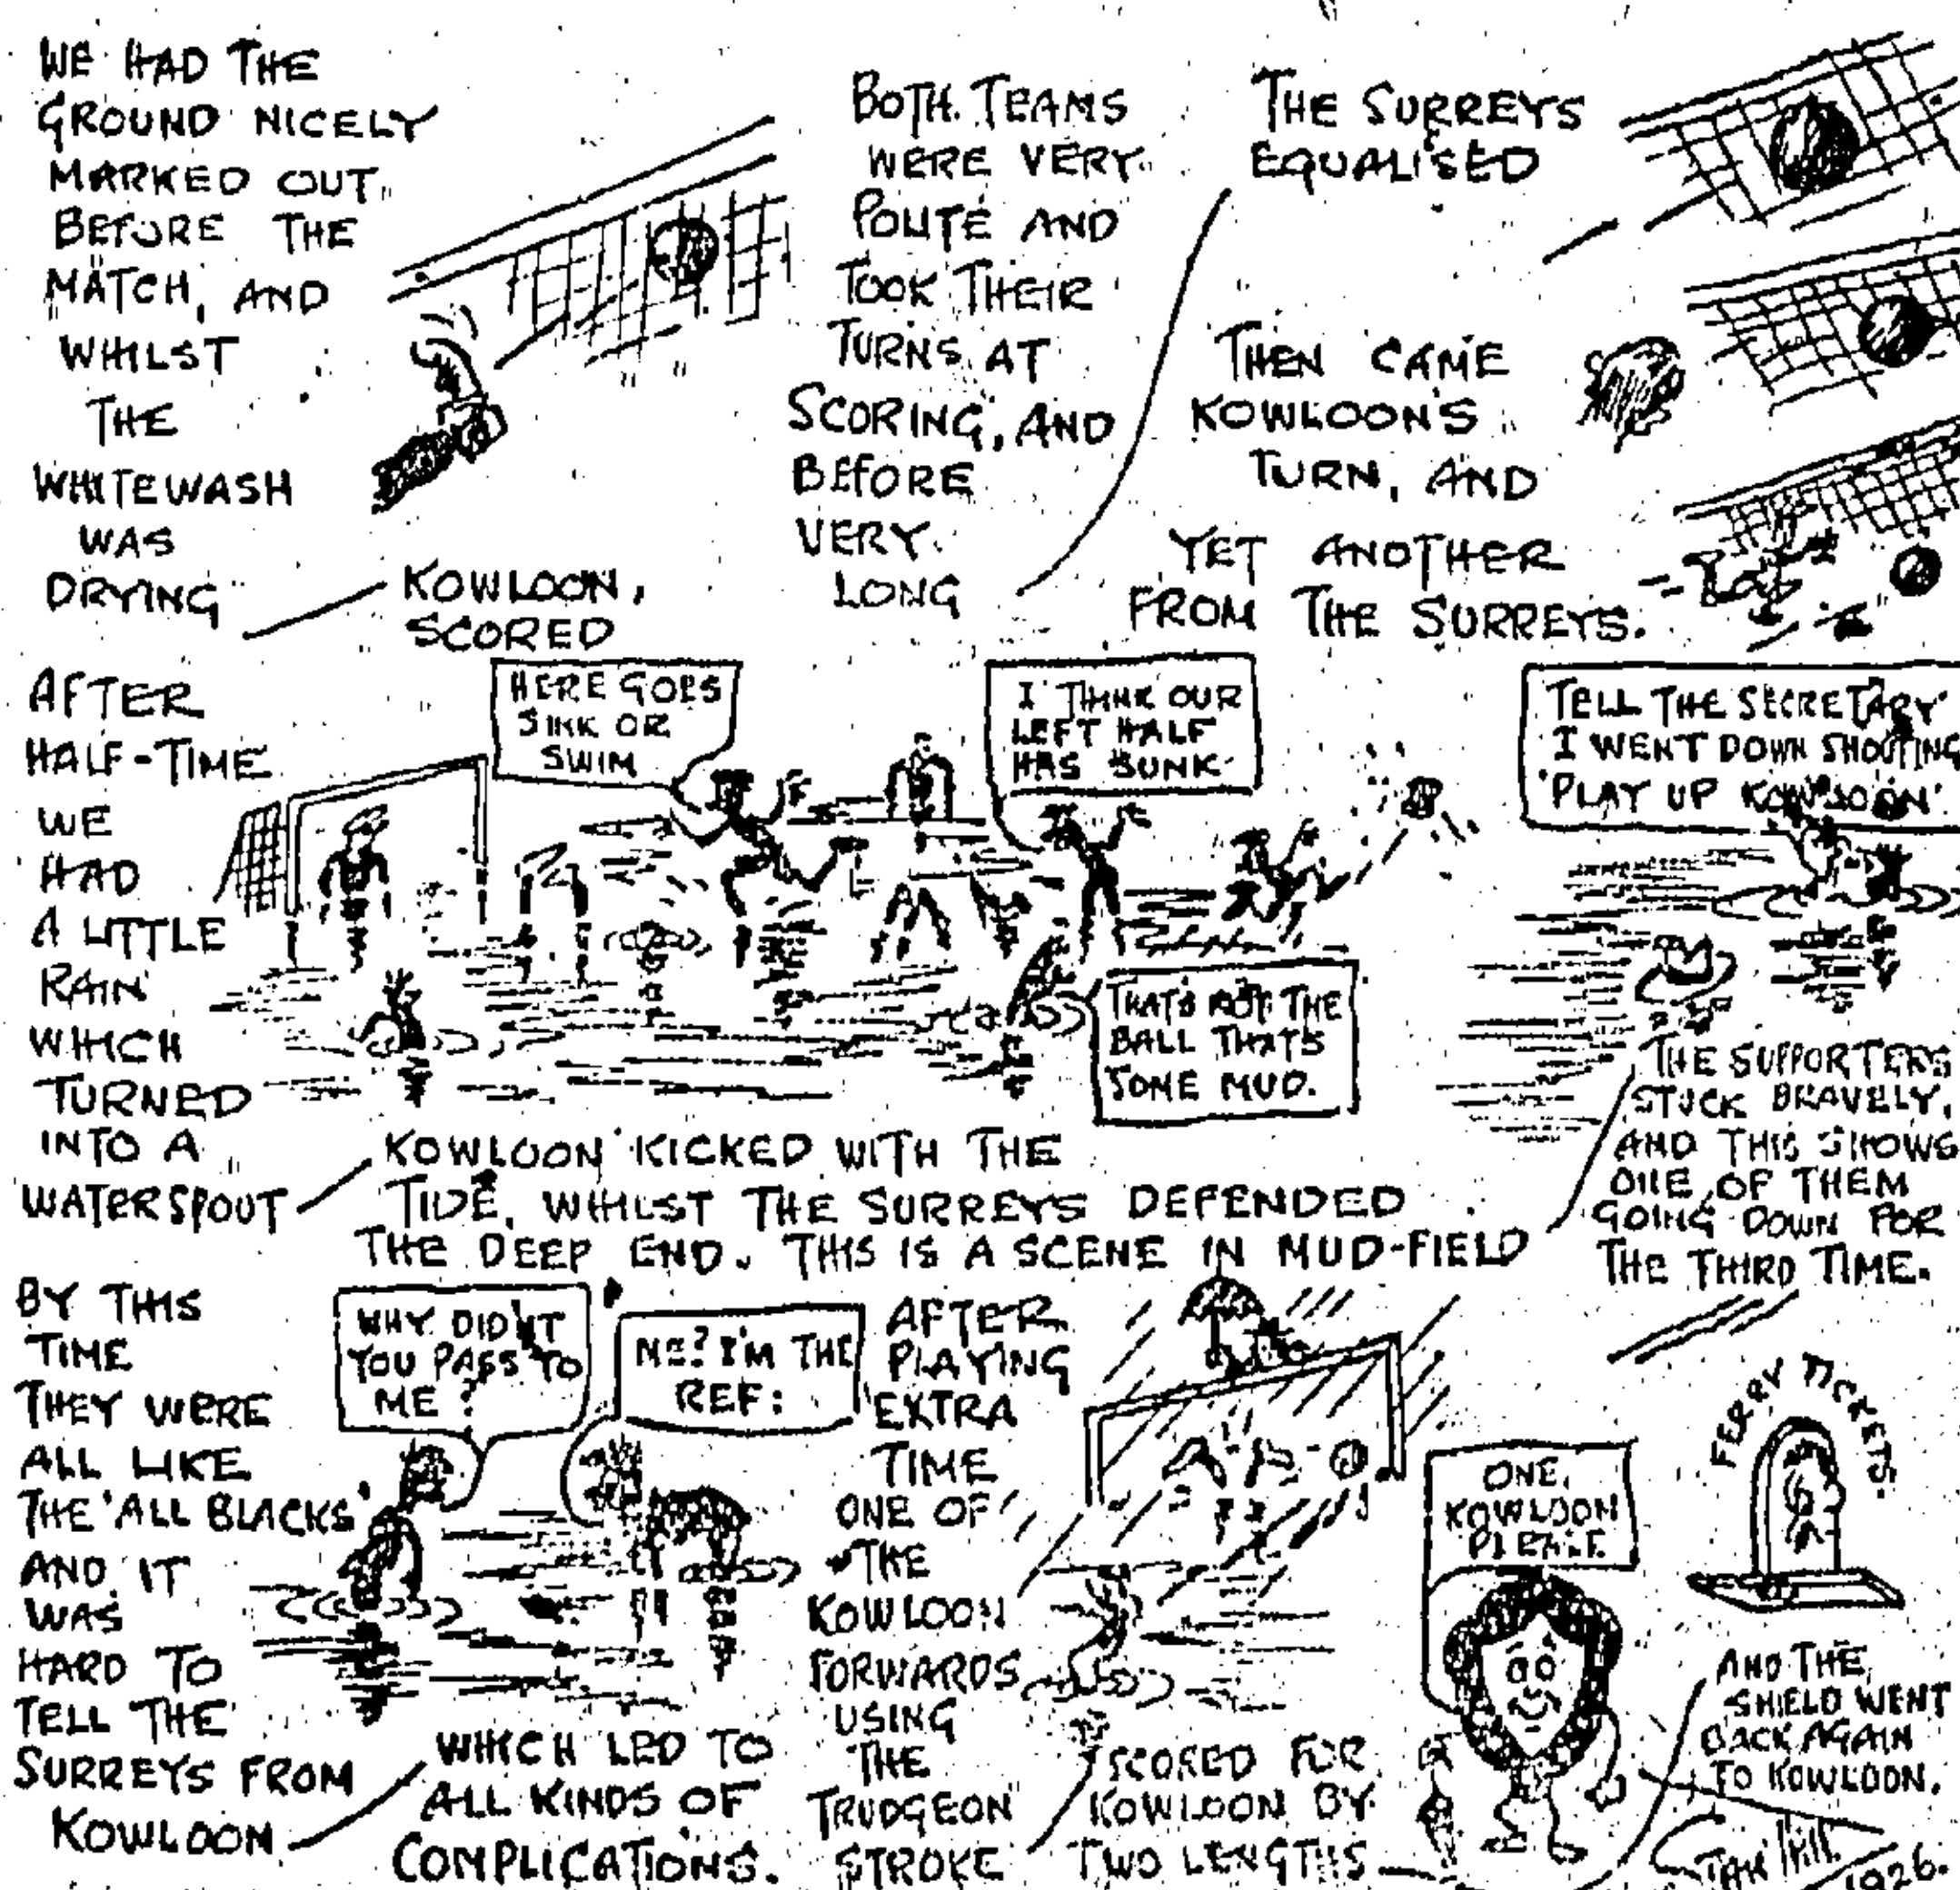 WE HAD THE
GROUND NICELY
MARKED OUT
BEFORE THE
MATCH, AND
WHILST
THE
WHITEWASH
WAS
DRYING
KOWLOON,
SCORED
BOTH TEAMS
WERE VERY
POLITE AND
TOOK THEIR
TURNS AT
SCORING, AND
BEFORE
VERY
LONG
THE SURREYS
EQUALISED
THEN CAME
KOWLOON'S
TURN, AND
YET ANOTHER
FROM THE SURREYS.
AFTER
HALF-TIME
WE
HAD
A LITTLE
RAIN
WHICH
TURNED
INTO A
WATERSPOUT
HERE GOES
SINK OR
SWIM
I THINK OUR
LEFT HALF
HAS SUNK
THAT'S NOT THE
BALL THAT'S
SOME MUD.
KOWLOON KICKED WITH THE
TIDE, WHILST THE SURREYS DEFENDED
THE DEEP END. THIS IS A SCENE IN MUD-FIELD
TELL THE SECRETARY
I WENT DOWN SHOUTING
'PLAY UP KOWLOON'.
THE SUPPORTERS
STUCK BRAVELY,
AND THIS SHOWS
ONE OF THEM
GOING DOWN FOR
THE THIRD TIME.
BY THIS
TIME
THEY WERE
ALL LIKE
THE 'ALL BLACKS'
AND IT
WAS
HARD TO
TELL THE
SURREYS FROM
KOWLOON
WHY DIDN'T
YOU PASS TO
ME?
ME? I'M THE
REF:
WHICH LED TO
ALL KINDS OF
COMPLICATIONS.
AFTER
PLAYING
EXTRA
TIME
ONE OF
THE
KOWLOON
FORWARDS
USING
THE
TRUDGEON
STROKE
SCORED FOR
KOWLOON BY
TWO LENGTHS
ONE,
KOWLOON
PLEASE
FERRY TICKETS.
AND THE
SHIELD WENT
BACK AGAIN
TO KOWLOON.
1926.